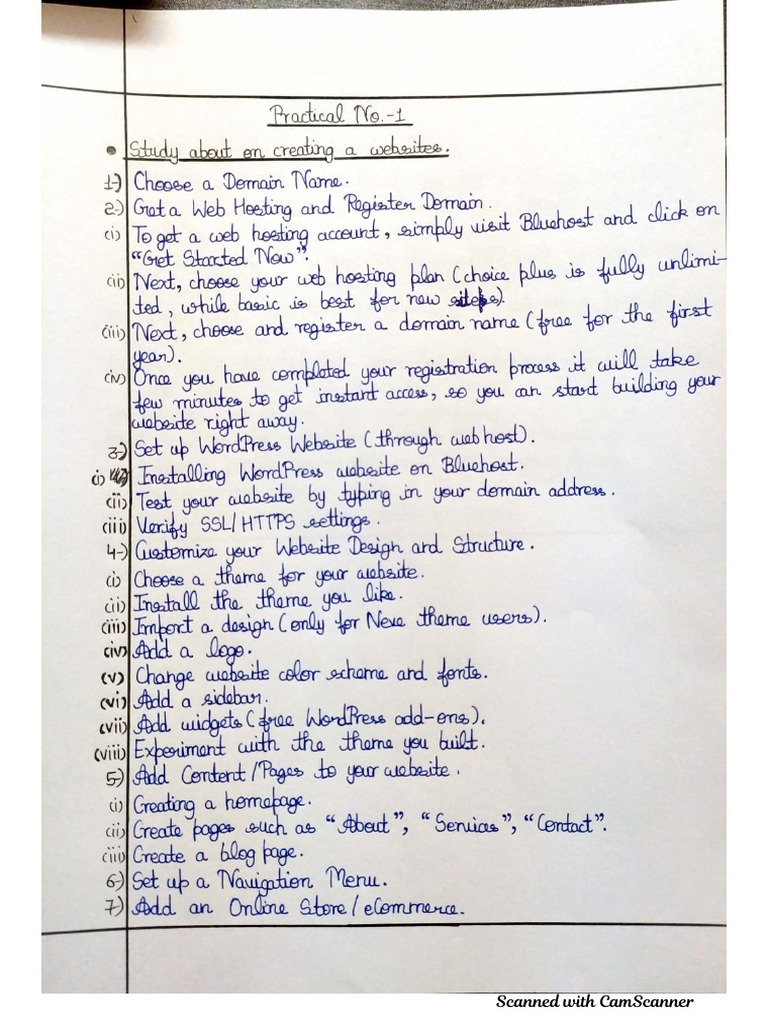 Practical No.-1
• Study about on creating a websites.
1-) Choose a Domain Name.
2-) Get a Web Hosting and Register Domain.
(i) To get a web hosting account, simply visit Bluehost and click on
"Get Started Now".
(ii) Next, choose your web hosting plan (choice plus is fully unlimi-
ted, while basic is best for new sites).
(iii) Next, choose and register a domain name (free for the first
year).
(iv) Once you have completed your registration process it will take
few minutes to get instant access, so you can start building your
website right away.
3-) Set up WordPress Website (through web host).
(i) Installing WordPress website on Bluehost.
(ii) Test your website by typing in your domain address.
(iii) Verify SSL/HTTPS settings.
4-) Customize your Website Design and Structure.
(i) Choose a theme for your website.
(ii) Install the theme you like.
(iii) Import a design (only for Neve theme users).
(iv) Add a logo.
(v) Change website color scheme and fonts.
(vi) Add a sidebar.
(vii) Add widgets (free WordPress add-ons).
(viii) Experiment with the theme you built.
5-) Add Content/Pages to your website.
(i) Creating a homepage.
(ii) Create pages such as "About", "Services", "Contact".
(iii) Create a blog page.
6-) Set up a Navigation Menu.
7-) Add an Online Store/eCommerce.
Scanned with CamScanner